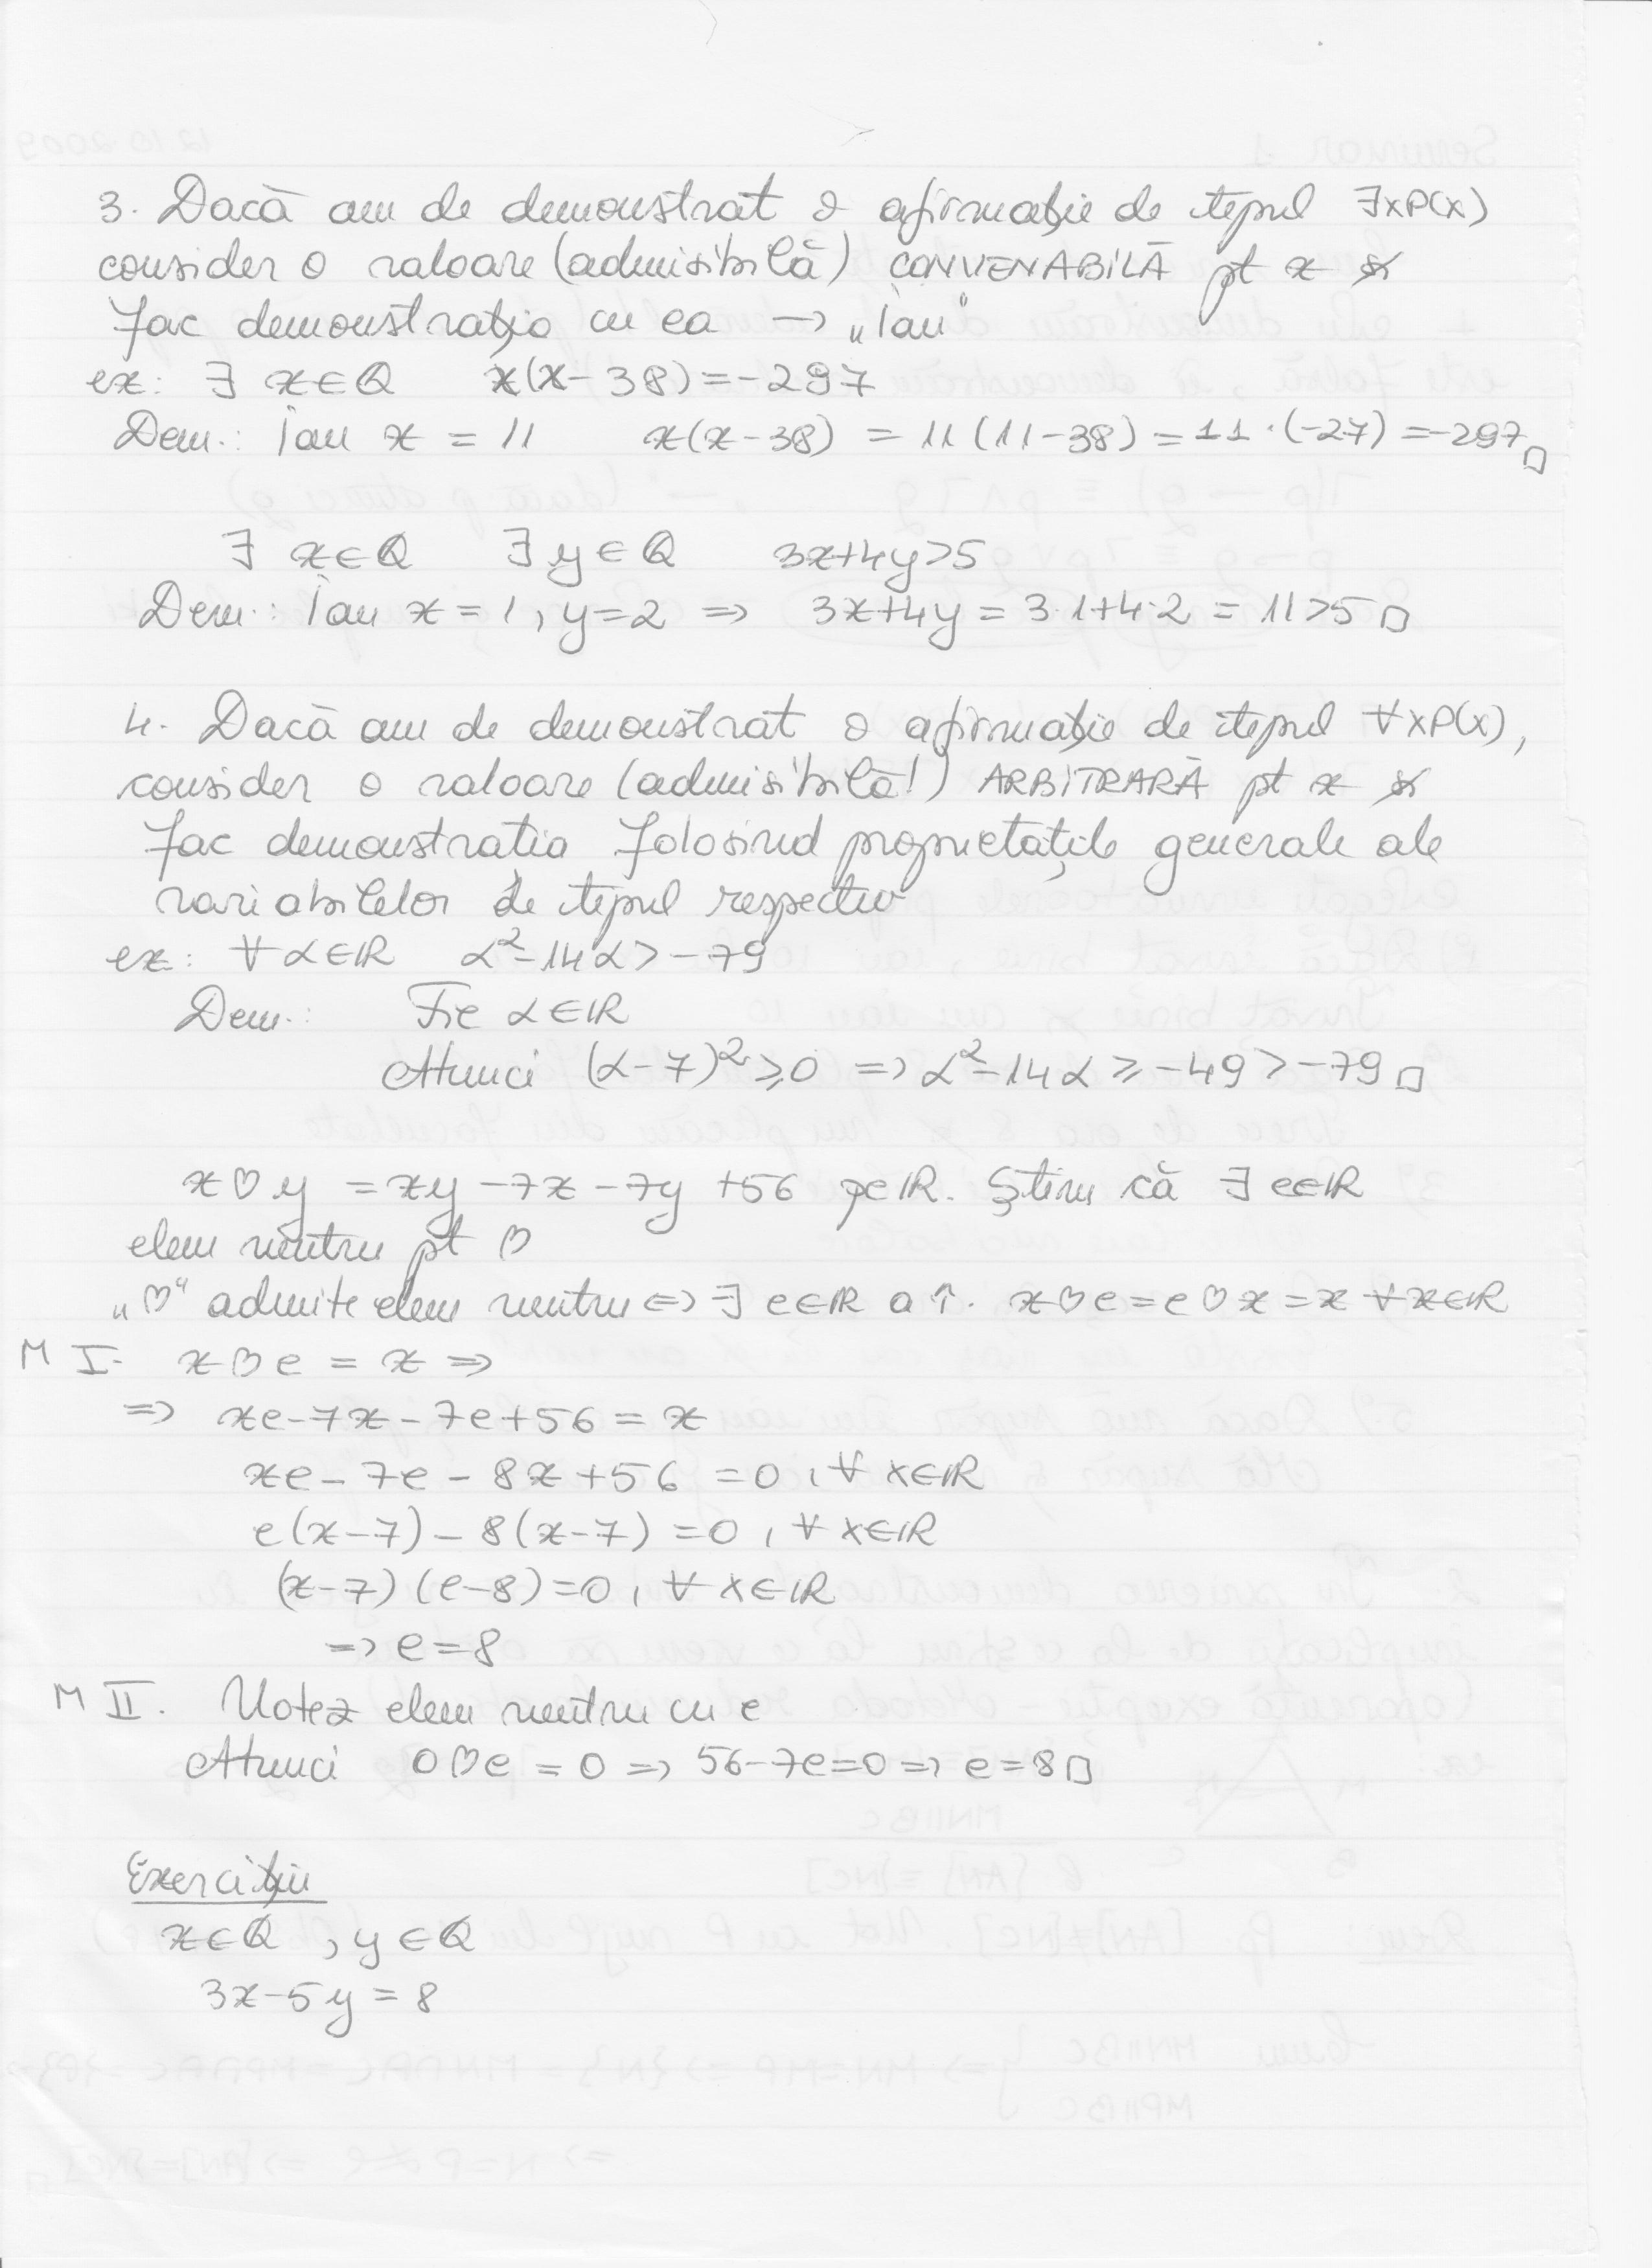 3. Dacă am de demonstrat o afirmație de tipul ∃xP(x)
consider o valoare (admisibilă) CONVENABILĂ pt x și
fac demonstrația cu ea → „iau”
ex: ∃ x∈Q x(x-38)=-297
Dem.: iau x = 11 x(x-38) = 11(11-38) = 11·(-27) = -297 □
∃ x∈Q ∃ y∈Q 3x+4y>5
Dem.: iau x=1, y=2 => 3x+4y = 3·1+4·2 = 11>5 □
4. Dacă am de demonstrat o afirmație de tipul ∀xP(x),
consider o valoare (admisibilă!) ARBITRARĂ pt x și
fac demonstratia folosind proprietațile generale ale
variabilelor de tipul respectiv
ex: ∀ α∈ℝ α²-14α>-79
Dem.: Fie α∈ℝ
Atunci (α-7)²≥0 => α²-14α ≥ -49 > -79 □
x♡y = xy-7x-7y+56 pe ℝ. Știm că ∃ e∈ℝ
elem neutru pt ♡
„♡” admite elem neutru <=> ∃ e∈ℝ a î. x♡e = e♡x = x ∀x∈ℝ
M I. x♡e = x =>
=> xe-7x-7e+56 = x
xe-7e-8x+56 = 0, ∀ x∈ℝ
e(x-7)-8(x-7) = 0, ∀ x∈ℝ
(x-7)(e-8)=0, ∀ x∈ℝ
=> e=8
M II. Notez elem neutru cu e
Atunci 0♡e = 0 => 56-7e=0 => e=8 □
Exercițiu
x∈Q, y∈Q
3x-5y = 8